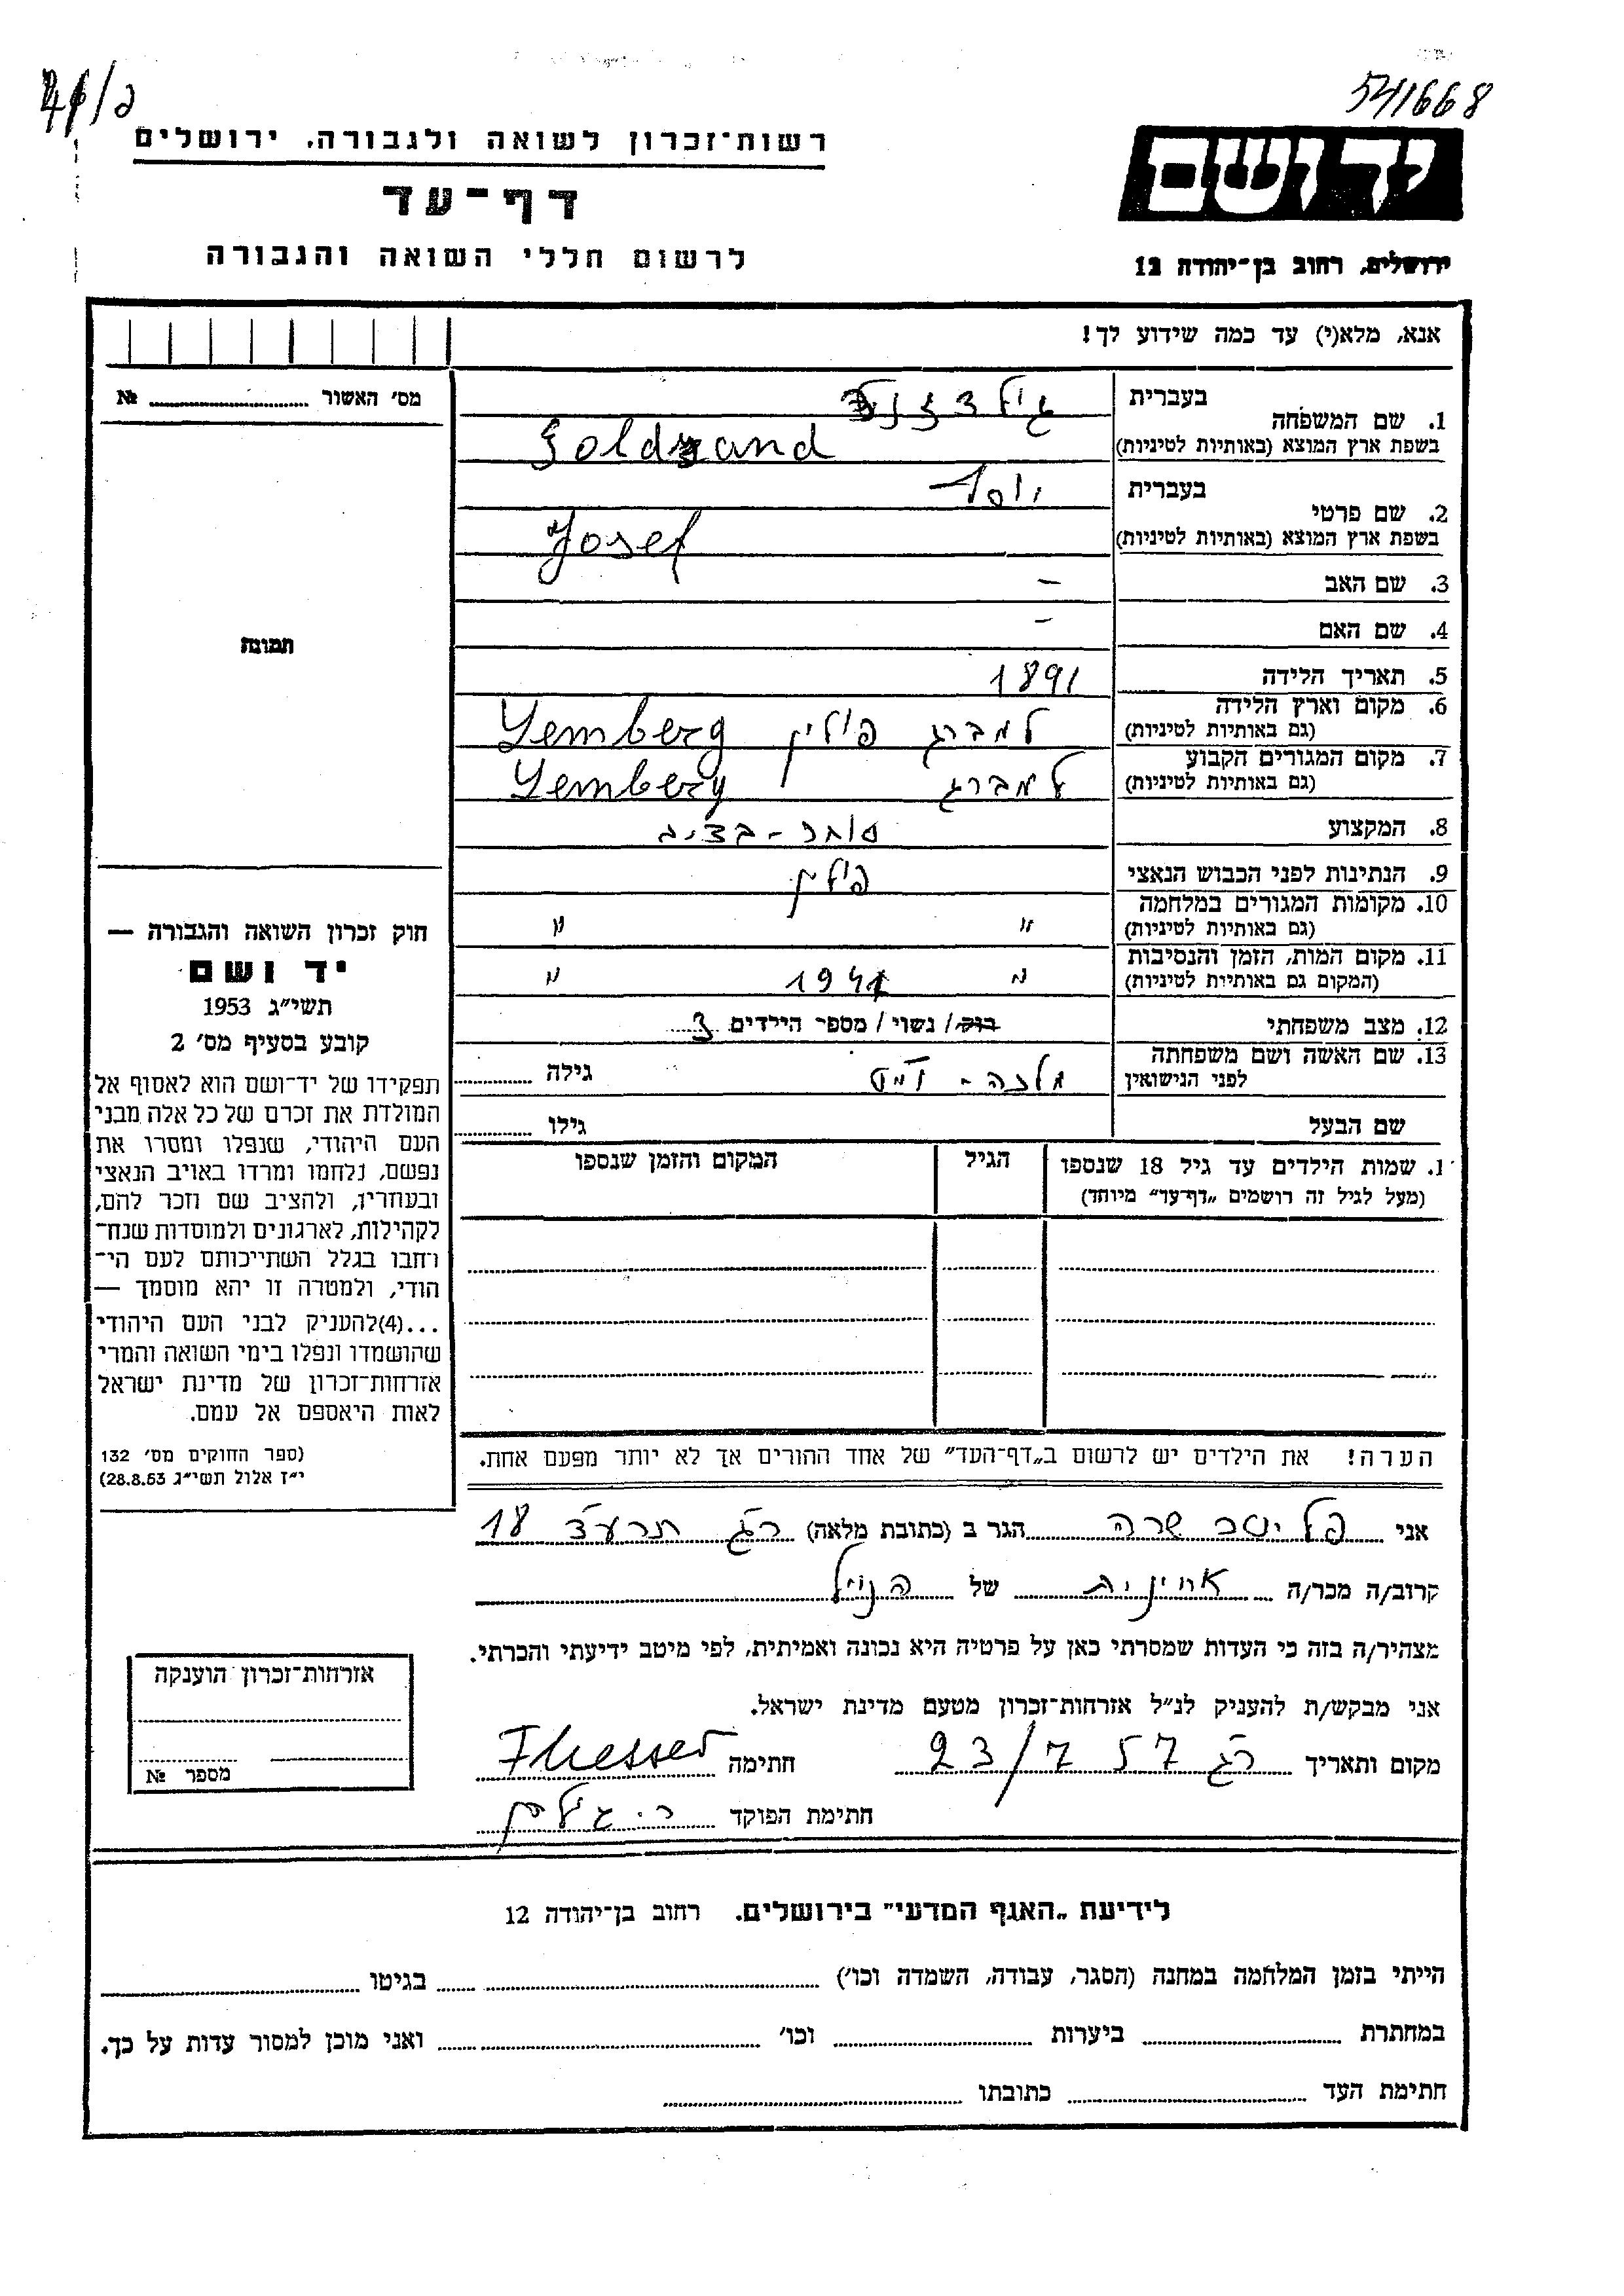 541668
ידושם
ירושלים, רחוב בן־יהודה 12
רשות־זכרון לשואה ולגבורה, ירושלים
דף־עד
לרשום חללי השואה והגבורה
אנא, מלא(י) עד כמה שידוע לך!
מס׳ האשור № 
1. שם המשפחה
בעברית
בשפת ארץ המוצא (באותיות לטיניות) Goldzand
2. שם פרטי
בעברית יוסף
בשפת ארץ המוצא (באותיות לטיניות) Josef
3. שם האב –
4. שם האם –
5. תאריך הלידה 1891
6. מקום וארץ הלידה למברג פולין Lemberg
(גם באותיות לטיניות)
7. מקום המגורים הקבוע למברג Lemberg
(גם באותיות לטיניות)
8. המקצוע סוחר - בצים
9. הנתינות לפני הכבוש הנאצי פולין
10. מקומות המגורים במלחמה " "
(גם באותיות לטיניות)
11. מקום המות, הזמן והנסיבות " 1941 "
(המקום גם באותיות לטיניות)
12. מצב משפחתי רוק/ נשוי/ מספר הילדים 3
13. שם האשה ושם משפחתה
לפני הנישואין גילה
שם הבעל גילו
תמונה
חוק זכרון השואה והגבורה —
יד ושם
תשי״ג 1953
קובע בסעיף מס׳ 2
תפקידו של יד־ושם הוא לאסוף אל
המולדת את זכרם של כל אלה מבני
העם היהודי, שנפלו ומסרו את
נפשם, נלחמו ומרדו באויב הנאצי
ובעוזריו, ולהציב שם וזכר להם,
לקהילות, לארגונים ולמוסדות שנח־
רחבו בגלל השתייכותם לעם הי־
הודי, ולמטרה זו יהא מוסמך —
...(4)להעניק לבני העם היהודי
שהושמדו ונפלו בימי השואה והמרי
אזרחות־זכרון של מדינת ישראל
לאות היאספם אל עמם.
(ספר החוקים מס׳ 132
י״ז אלול תשי״ג 28.8.53)
1. שמות הילדים עד גיל 18 שנספו הגיל המקום והזמן שנספו
(מעל לגיל זה רושמים „דף־עד״ מיוחד)
הערה! את הילדים יש לרשום ב„דף־העד״ של אחד ההורים אך לא יותר מפעם אחת.
אני שרה הגר ב (כתובת מלאה) רג תרע״ד 18
קרוב/ה מכר/ה אחינית של הנ״ל
מצהיר/ה בזה כי העדות שמסרתי כאן על פרטיה היא נכונה ואמיתית, לפי מיטב ידיעתי והכרתי.
אני מבקש/ת להעניק לנ״ל אזרחות־זכרון מטעם מדינת ישראל.
מקום ותאריך רג 23/7 57 חתימה
חתימת הפוקד
אזרחות־זכרון הוענקה
מספר №
לידיעת „האגף המדעי״ בירושלים. רחוב בן־יהודה 12
הייתי בזמן המלחמה במחנה (הסגר, עבודה, השמדה וכו׳) בגיטו
במחתרת ביערות וכו׳ ואני מוכן למסור עדות על כך.
חתימת העד כתובתו